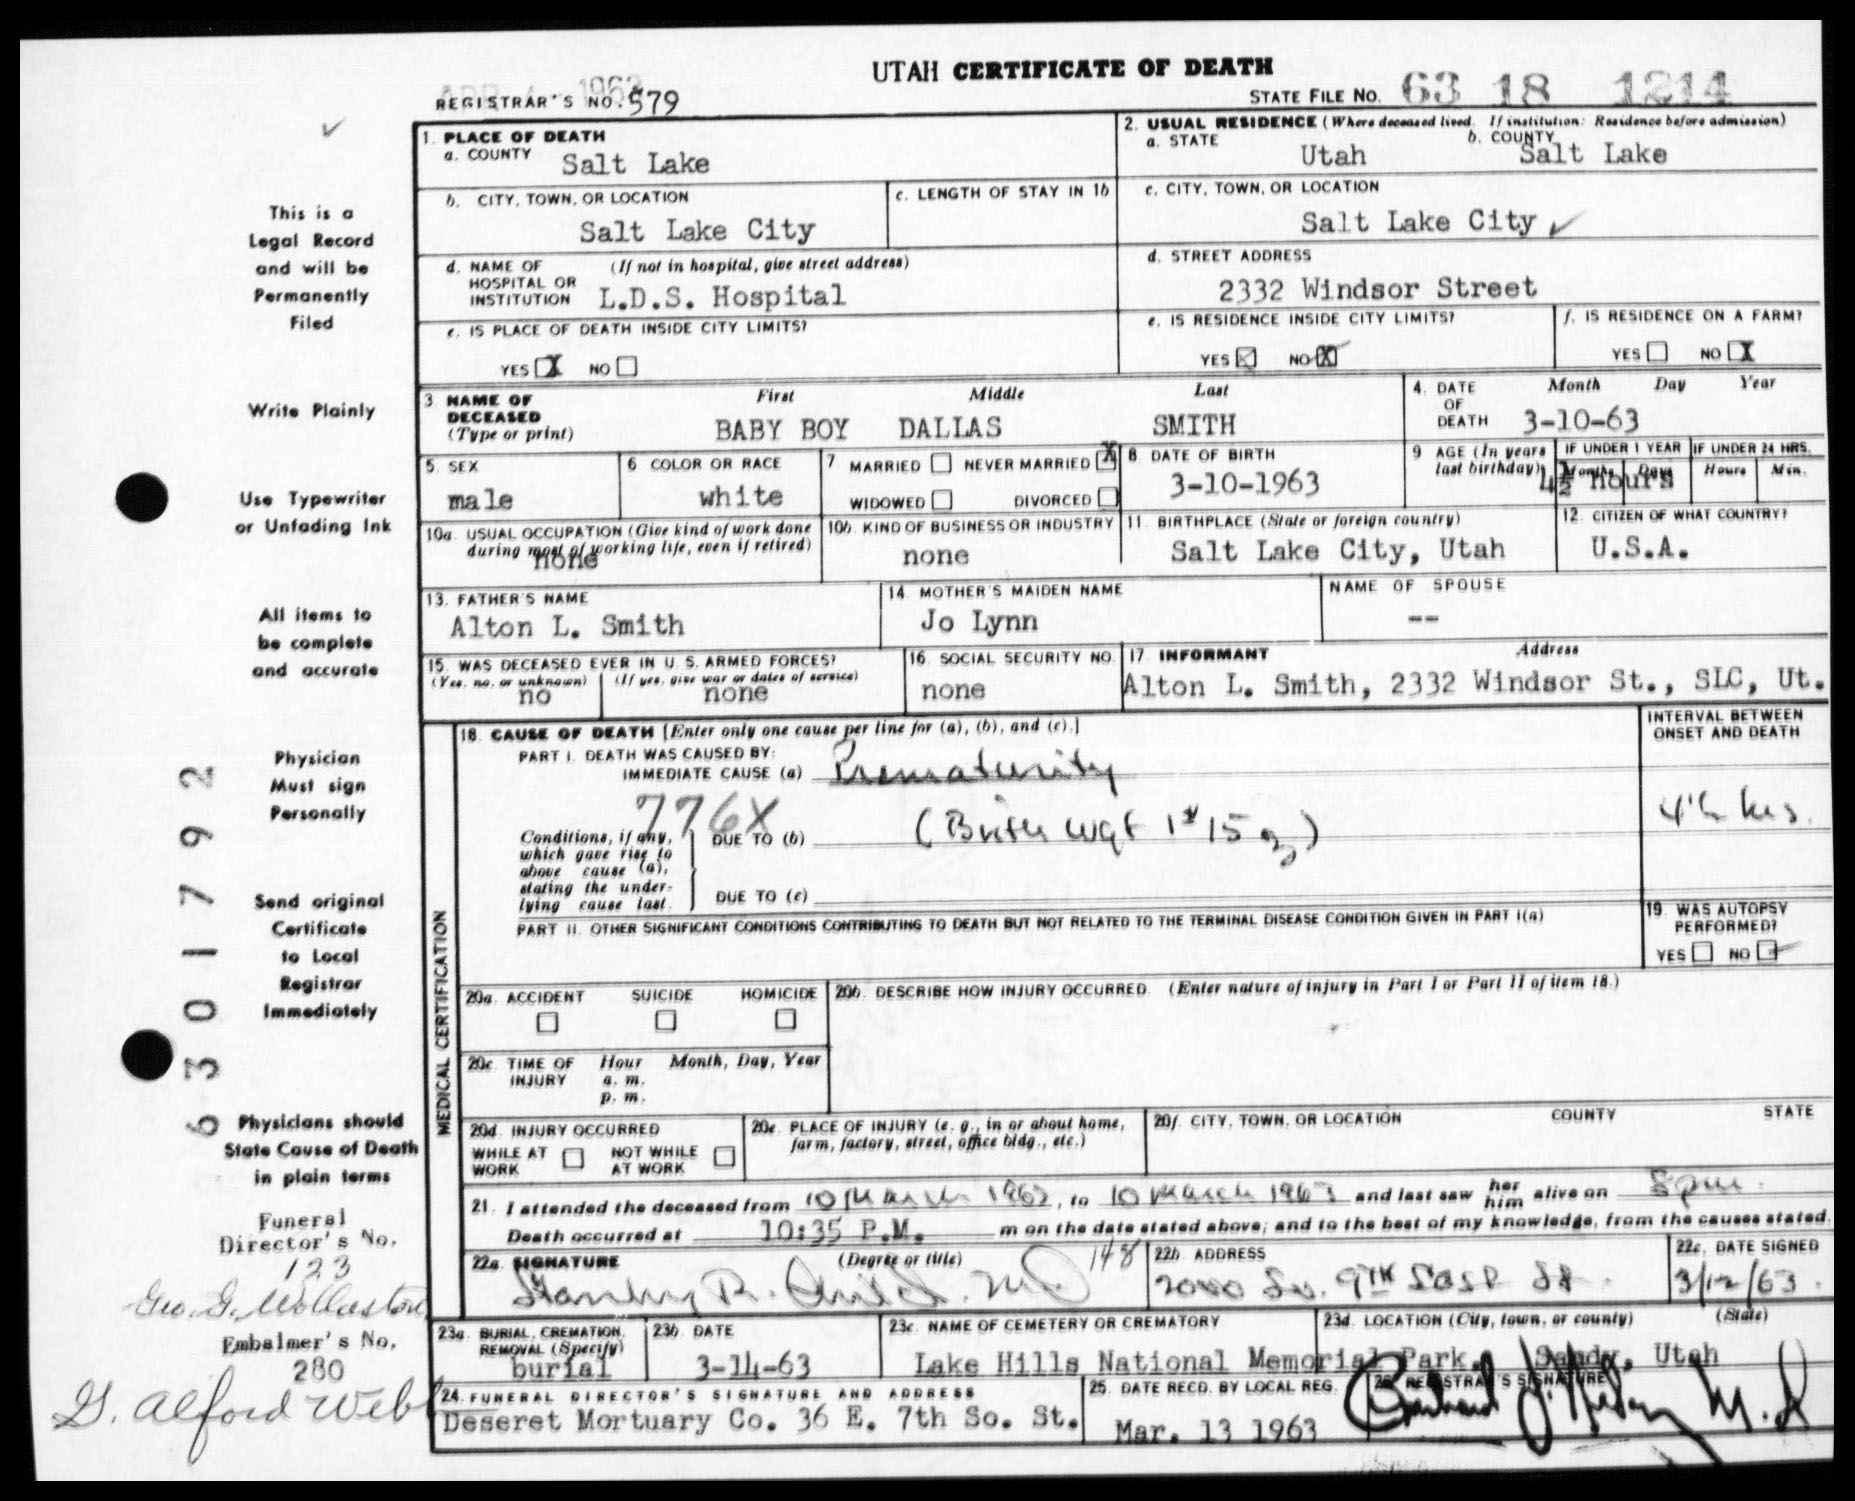 UTAH CERTIFICATE OF DEATH
REGISTRAR'S NO. 579
STATE FILE NO. 63 18 1214
1. PLACE OF DEATH
a. COUNTY Salt Lake
2. USUAL RESIDENCE (Where deceased lived. If institution: Residence before admission)
a. STATE Utah b. COUNTY Salt Lake
b. CITY, TOWN, OR LOCATION Salt Lake City
c. LENGTH OF STAY IN 1b
c. CITY, TOWN, OR LOCATION
Salt Lake City
d. NAME OF HOSPITAL OR INSTITUTION (If not in hospital, give street address)
L.D.S. Hospital
d. STREET ADDRESS
2332 Windsor Street
e. IS PLACE OF DEATH INSIDE CITY LIMITS?
YES X NO
e. IS RESIDENCE INSIDE CITY LIMITS?
YES X NO X
f. IS RESIDENCE ON A FARM?
YES NO X
3. NAME OF DECEASED (Type or print)
First Middle Last
BABY BOY DALLAS SMITH
4. DATE OF DEATH Month Day Year
3-10-63
5. SEX
male
6. COLOR OR RACE
white
7. MARRIED NEVER MARRIED X
WIDOWED DIVORCED
8. DATE OF BIRTH
3-10-1963
9. AGE (In years last birthday)
IF UNDER 1 YEAR Months Days
IF UNDER 24 HRS. Hours Min.
4½ hours
10a. USUAL OCCUPATION (Give kind of work done during most of working life, even if retired)
none
10b. KIND OF BUSINESS OR INDUSTRY
none
11. BIRTHPLACE (State or foreign country)
Salt Lake City, Utah
12. CITIZEN OF WHAT COUNTRY?
U.S.A.
13. FATHER'S NAME
Alton L. Smith
14. MOTHER'S MAIDEN NAME
Jo Lynn
NAME OF SPOUSE
--
15. WAS DECEASED EVER IN U. S. ARMED FORCES?
(Yes, no, or unknown) (If yes, give war or dates of service)
no none
16. SOCIAL SECURITY NO.
none
17. INFORMANT Address
Alton L. Smith, 2332 Windsor St., SLC, Ut.
MEDICAL CERTIFICATION
18. CAUSE OF DEATH [Enter only one cause per line for (a), (b), and (c).]
INTERVAL BETWEEN ONSET AND DEATH
PART I. DEATH WAS CAUSED BY:
IMMEDIATE CAUSE (a) Prematurity
776X
4½ hrs.
Conditions, if any, which gave rise to above cause (a), stating the underlying cause last.
DUE TO (b) (Birth wgt 1# 15 oz)
DUE TO (c)
PART II. OTHER SIGNIFICANT CONDITIONS CONTRIBUTING TO DEATH BUT NOT RELATED TO THE TERMINAL DISEASE CONDITION GIVEN IN PART I(a)
19. WAS AUTOPSY PERFORMED?
YES NO
20a. ACCIDENT SUICIDE HOMICIDE
20b. DESCRIBE HOW INJURY OCCURRED. (Enter nature of injury in Part I or Part II of item 18.)
20c. TIME OF INJURY Hour Month, Day, Year
a. m.
p. m.
20d. INJURY OCCURRED
WHILE AT WORK NOT WHILE AT WORK
20e. PLACE OF INJURY (e. g., in or about home, farm, factory, street, office bldg., etc.)
20f. CITY, TOWN, OR LOCATION COUNTY STATE
21. I attended the deceased from 10 March 1963, to 10 March 1963 and last saw her him alive on 8 pm.
Death occurred at 10:35 P.M. m on the date stated above; and to the best of my knowledge, from the causes stated.
22a. SIGNATURE (Degree or title)
Stanley R. Child. MD 148
22b. ADDRESS
2000 So. 9th East St.
22c. DATE SIGNED
3/12/63.
23a. BURIAL, CREMATION, REMOVAL (Specify)
burial
23b. DATE
3-14-63
23c. NAME OF CEMETERY OR CREMATORY
Lake Hills National Memorial Park,
23d. LOCATION (City, town, or county) (State)
Sandy, Utah
24. FUNERAL DIRECTOR'S SIGNATURE AND ADDRESS
Deseret Mortuary Co. 36 E. 7th So. St.
25. DATE RECD. BY LOCAL REG.
Mar. 13 1963
26. REGISTRAR'S SIGNATURE
M.D
This is a
Legal Record
and will be
Permanently
Filed
Write Plainly
Use Typewriter
or Unfading Ink
All items to
be complete
and accurate
Physician
Must sign
Personally
Send original
Certificate
to Local
Registrar
Immediately
Physicians should
State Cause of Death
in plain terms
Funeral
Director's No.
123
Geo. G. Wollaston
Embalmer's No.
280
G. Alford Webb
6301792